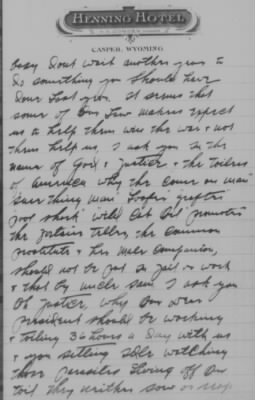 HENNING HOTEL
CASPER, WYOMING
Easy dont wait another year to
do something you should have
done last year. It seems that
some of our Law makers expect
us to help them win the war & not
them help us, I ask you in the
name of God & Justice & the toilers
of America why the common man
loafer grafter
pool shark wild cat oil promoter
the fortune teller the common
prostitute & her male companion,
should not be put in jail or work
& that by uncle sam I ask you
Oh Justice why our dear
President should be working
& toiling 36 hours a day with us
& you setting Idle watching
these parasites living off our
toil they neither sow or reap